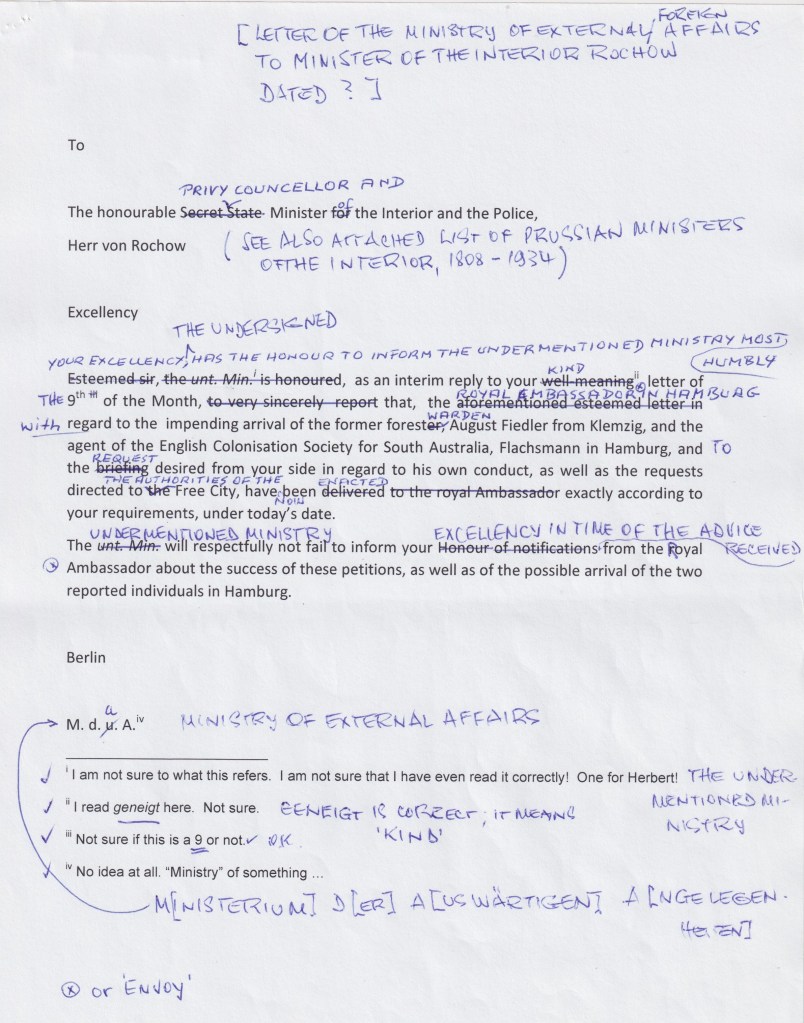 FOREIGN
[LETTER OF THE MINISTRY OF EXTERNAL/ AFFAIRS
TO MINISTER OF THE INTERIOR ROCHOW
DATED ? ]
To
PRIVY COUNCELLOR AND
The honourable Secret State Minister for of the Interior and the Police,
Herr von Rochow (SEE ALSO ATTACHED LIST OF PRUSSIAN MINISTERS
OF THE INTERIOR, 1808 - 1934)
Excellency
THE UNDERSIGNED
YOUR EXCELLENCY, HAS THE HONOUR TO INFORM THE UNDERMENTIONED MINISTRY MOST
HUMBLY
KIND
Esteemed sir, the unt. Min.i is honoured, as an interim reply to your well-meaningii letter of
ROYAL EMBASSADOR IN HAMBURG
THE 9th iii of the Month, to very sincerely report that, the aforementioned esteemed letter in
WARDEN
with regard to the impending arrival of the former forester, August Fiedler from Klemzig, and the
agent of the English Colonisation Society for South Australia, Flachsmann in Hamburg, and TO
REQUEST
the briefing desired from your side in regard to his own conduct, as well as the requests
THE AUTHORITIES OF THE ENACTED
directed to the Free City, have been delivered to the royal Ambassador exactly according to
your requirements, under today's date.
UNDERMENTIONED MINISTRY EXCELLENCY IN TIME OF THE ADVICE
The unt. Min. will respectfully not fail to inform your Honour of notifications from the Royal RECEIVED
ⓧ Ambassador about the success of these petitions, as well as of the possible arrival of the two
reported individuals in Hamburg.
Berlin
a
M. d. u. A.iv MINISTRY OF EXTERNAL AFFAIRS
i I am not sure to what this refers. I am not sure that I have even read it correctly! One for Herbert! THE UNDER-
MENTIONED MI-
NISTRY
ii I read geneigt here. Not sure. GENEIGT IS CORRECT; IT MEANS
'KIND'
iii Not sure if this is a 9 or not. ✓ OK
iv No idea at all. "Ministry" of something …
M[INISTERIUM] D[ER] A[USWÄRTIGEN] A[NGELEGEN-
HEITEN]
ⓧ or 'ENVOY'